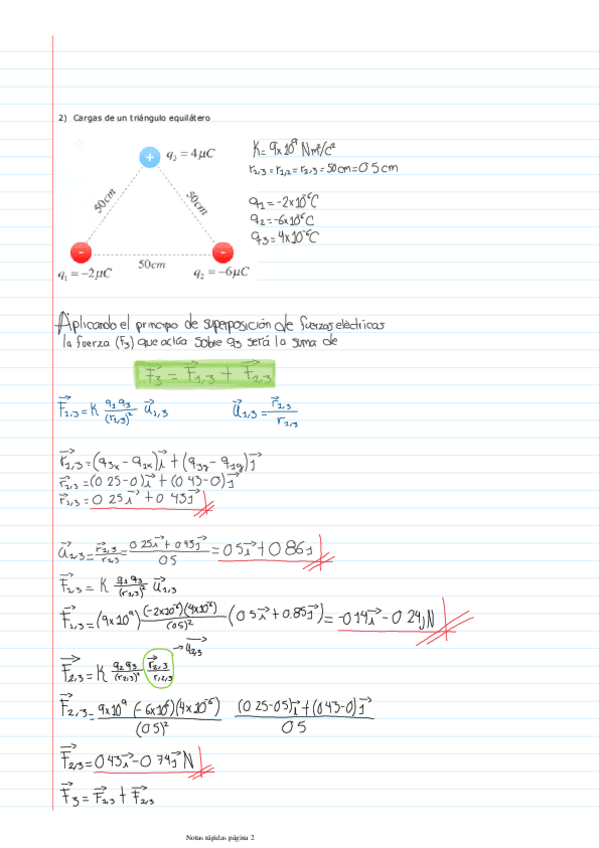 2) Cargas de un triángulo equilátero
q₃ = 4μC
50cm
50cm
50cm
q₁ = −2μC
q₂ = −6μC
K= 9x10⁹ Nm²/c²
r₂,₃ = r₁,₂ = r₂,₃ = 50cm = 0 5 cm
q₁ = -2x10⁻⁶C
q₂ = -6x10⁻⁶C
q₃ = 4x10⁻⁶C
Aplicando el principio de superposición de fuerzas eléctricas
la fuerza (F₃) que actúa sobre q₃ será la suma de
F₃ = F₁,₃ + F₂,₃
F₁,₃ = K q₁ q₃ / (r₁,₃)² u₁,₃
u₁,₃ = r₁,₃ / r₁,₃
r₁,₃ = (q₃ₓ - q₁ₓ)i + (q₃y - q₁y)j
r₁,₃ = (0 25-0)i + (0 43-0)j
r₁,₃ = 0 25i + 0 43j
u₂,₃ = r₂,₃ / r₂,₃ = 0 25i + 0 43j / 0 5 = 0 5i + 0 86j
F₁,₃ = K q₁ q₃ / (r₁,₃)² u₁,₃
F₁,₃ = (9x10⁹) (-2x10⁻⁶)(4x10⁻⁶) / (0 5)² (0 5i + 0.85j) = -0 14i - 0 24j N
u₂,₃
F₂,₃ = K q₂ q₃ / (r₂,₃)² r₂,₃ / r₂,₃
F₂,₃ = 9x10⁹ (-6x10⁻⁶)(4x10⁻⁶) / (0 5)² (0 25-0 5)i + (0 43-0)j / 0 5
F₂,₃ = 0 43i - 0 74j N
F₃ = F₁,₃ + F₂,₃
Notas rápidas página 2